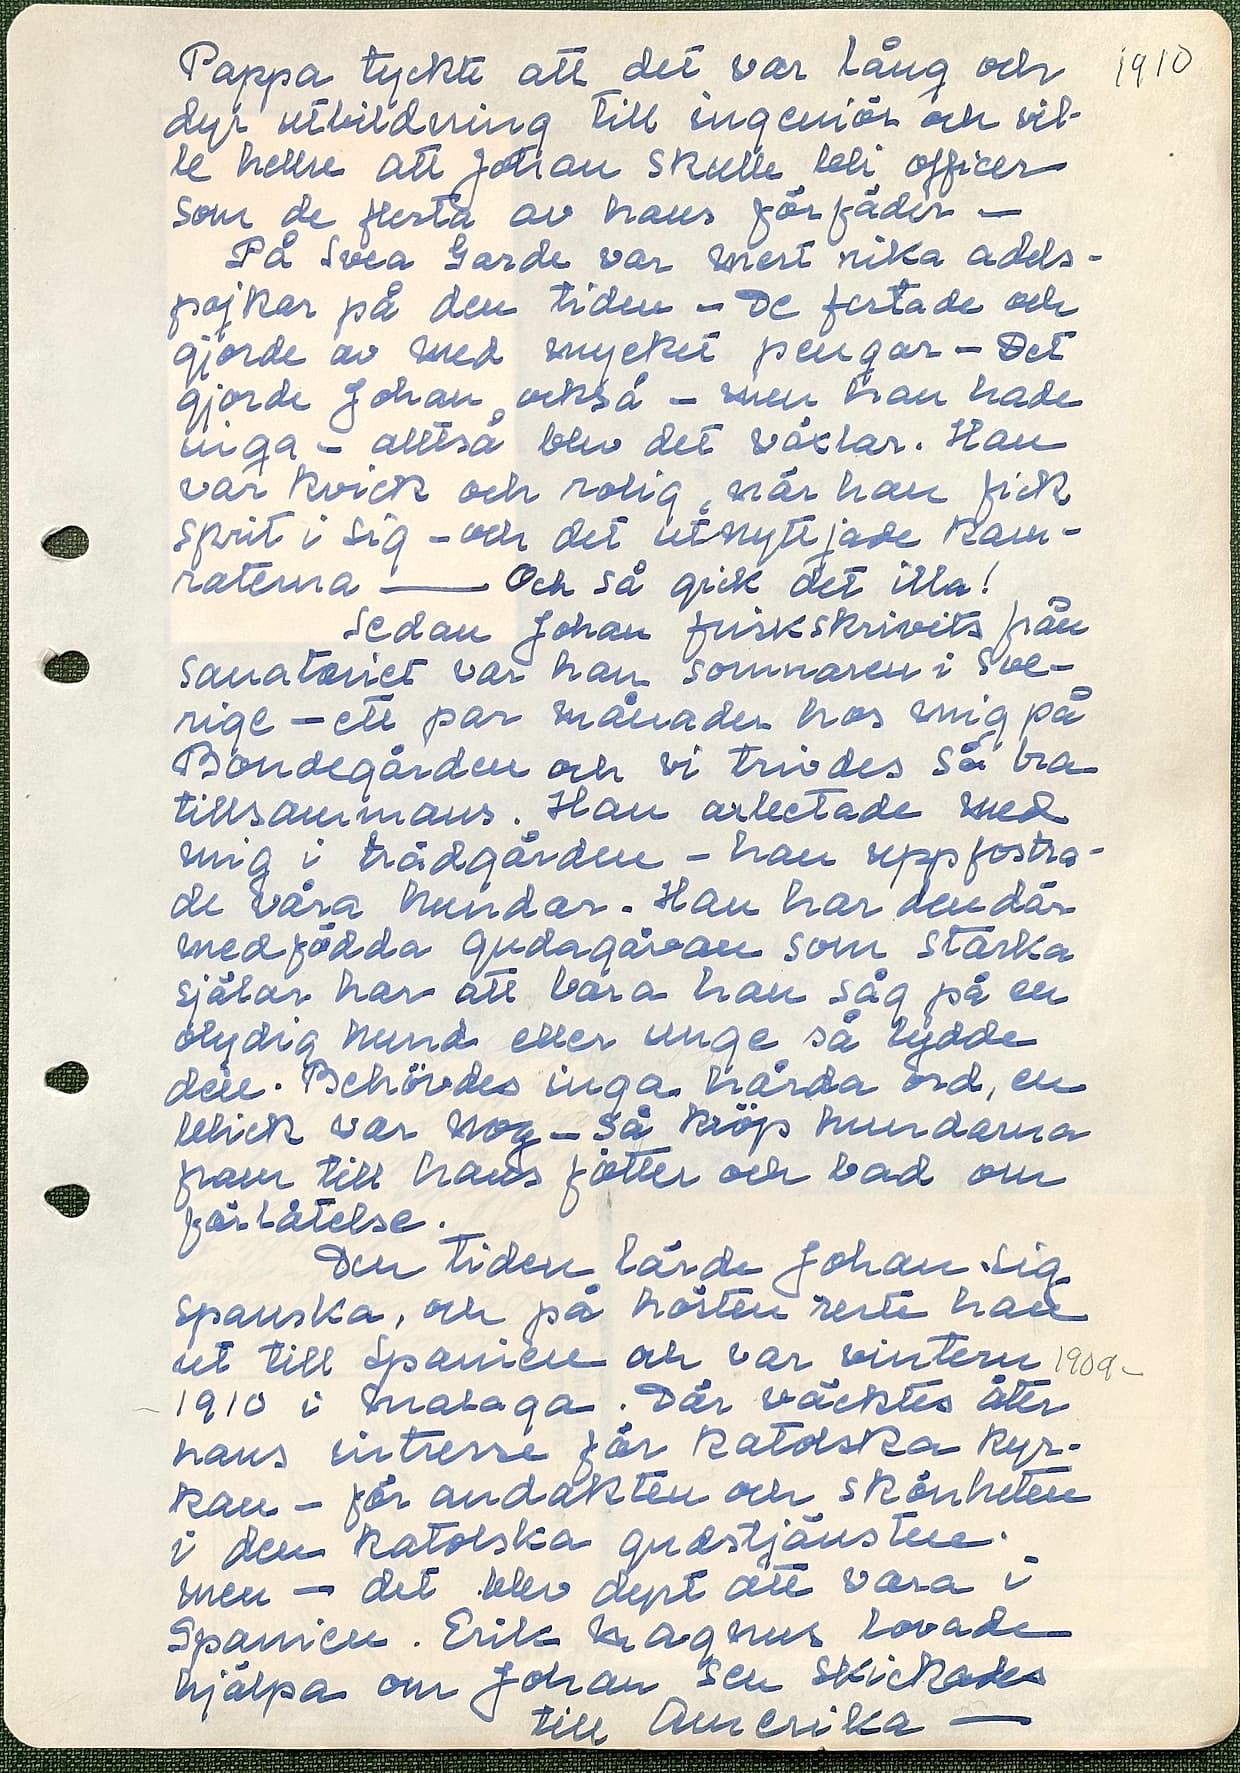 1910
Pappa tyckte att det var lång och
dyr utbildning till ingeniör och vil-
le hellre att Johan skulle bli officer
som de flesta av hans förfäder —
På Svea Garde var mest rika adels-
pojkar på den tiden — De festade och
gjorde av med mycket pengar — Det
gjorde Johan också — men han hade
inga — alltså blev det växlar. Han
var kvick och rolig, när han fick
sprit i sig — och det utnyttjade kam-
raterna —— Och så gick det illa!
Sedan Johan friskskrivits från
sanatoriet var han sommaren i Sve-
rige — ett par månader hos mig på
Bondegården och vi trivdes så bra
tillsammans. Han arbetade med
mig i trädgården — han uppfostra-
de våra hundar. Han har den där
medfödda gudagåvan som starka
själar har att bara han såg på en
olydig hund eller unge så lydde
den. Behövdes inga hårda ord, en
blick var nog — Så kröp hundarna
fram till hans fötter och bad om
förlåtelse.
Den tiden lärde Johan sig
spanska, och på hösten reste han
ut till Spanien och var vintern 1909-
-1910 i Malaga. Där väcktes åter
hans intresse för katolska kyr-
kan — för andakten och skönheten
i den katolska gudstjänsten.
Men — det blev dyrt att vara i
Spanien. Erik Magnus lovade
hjälpa om Johan sen skickades
till Amerika —